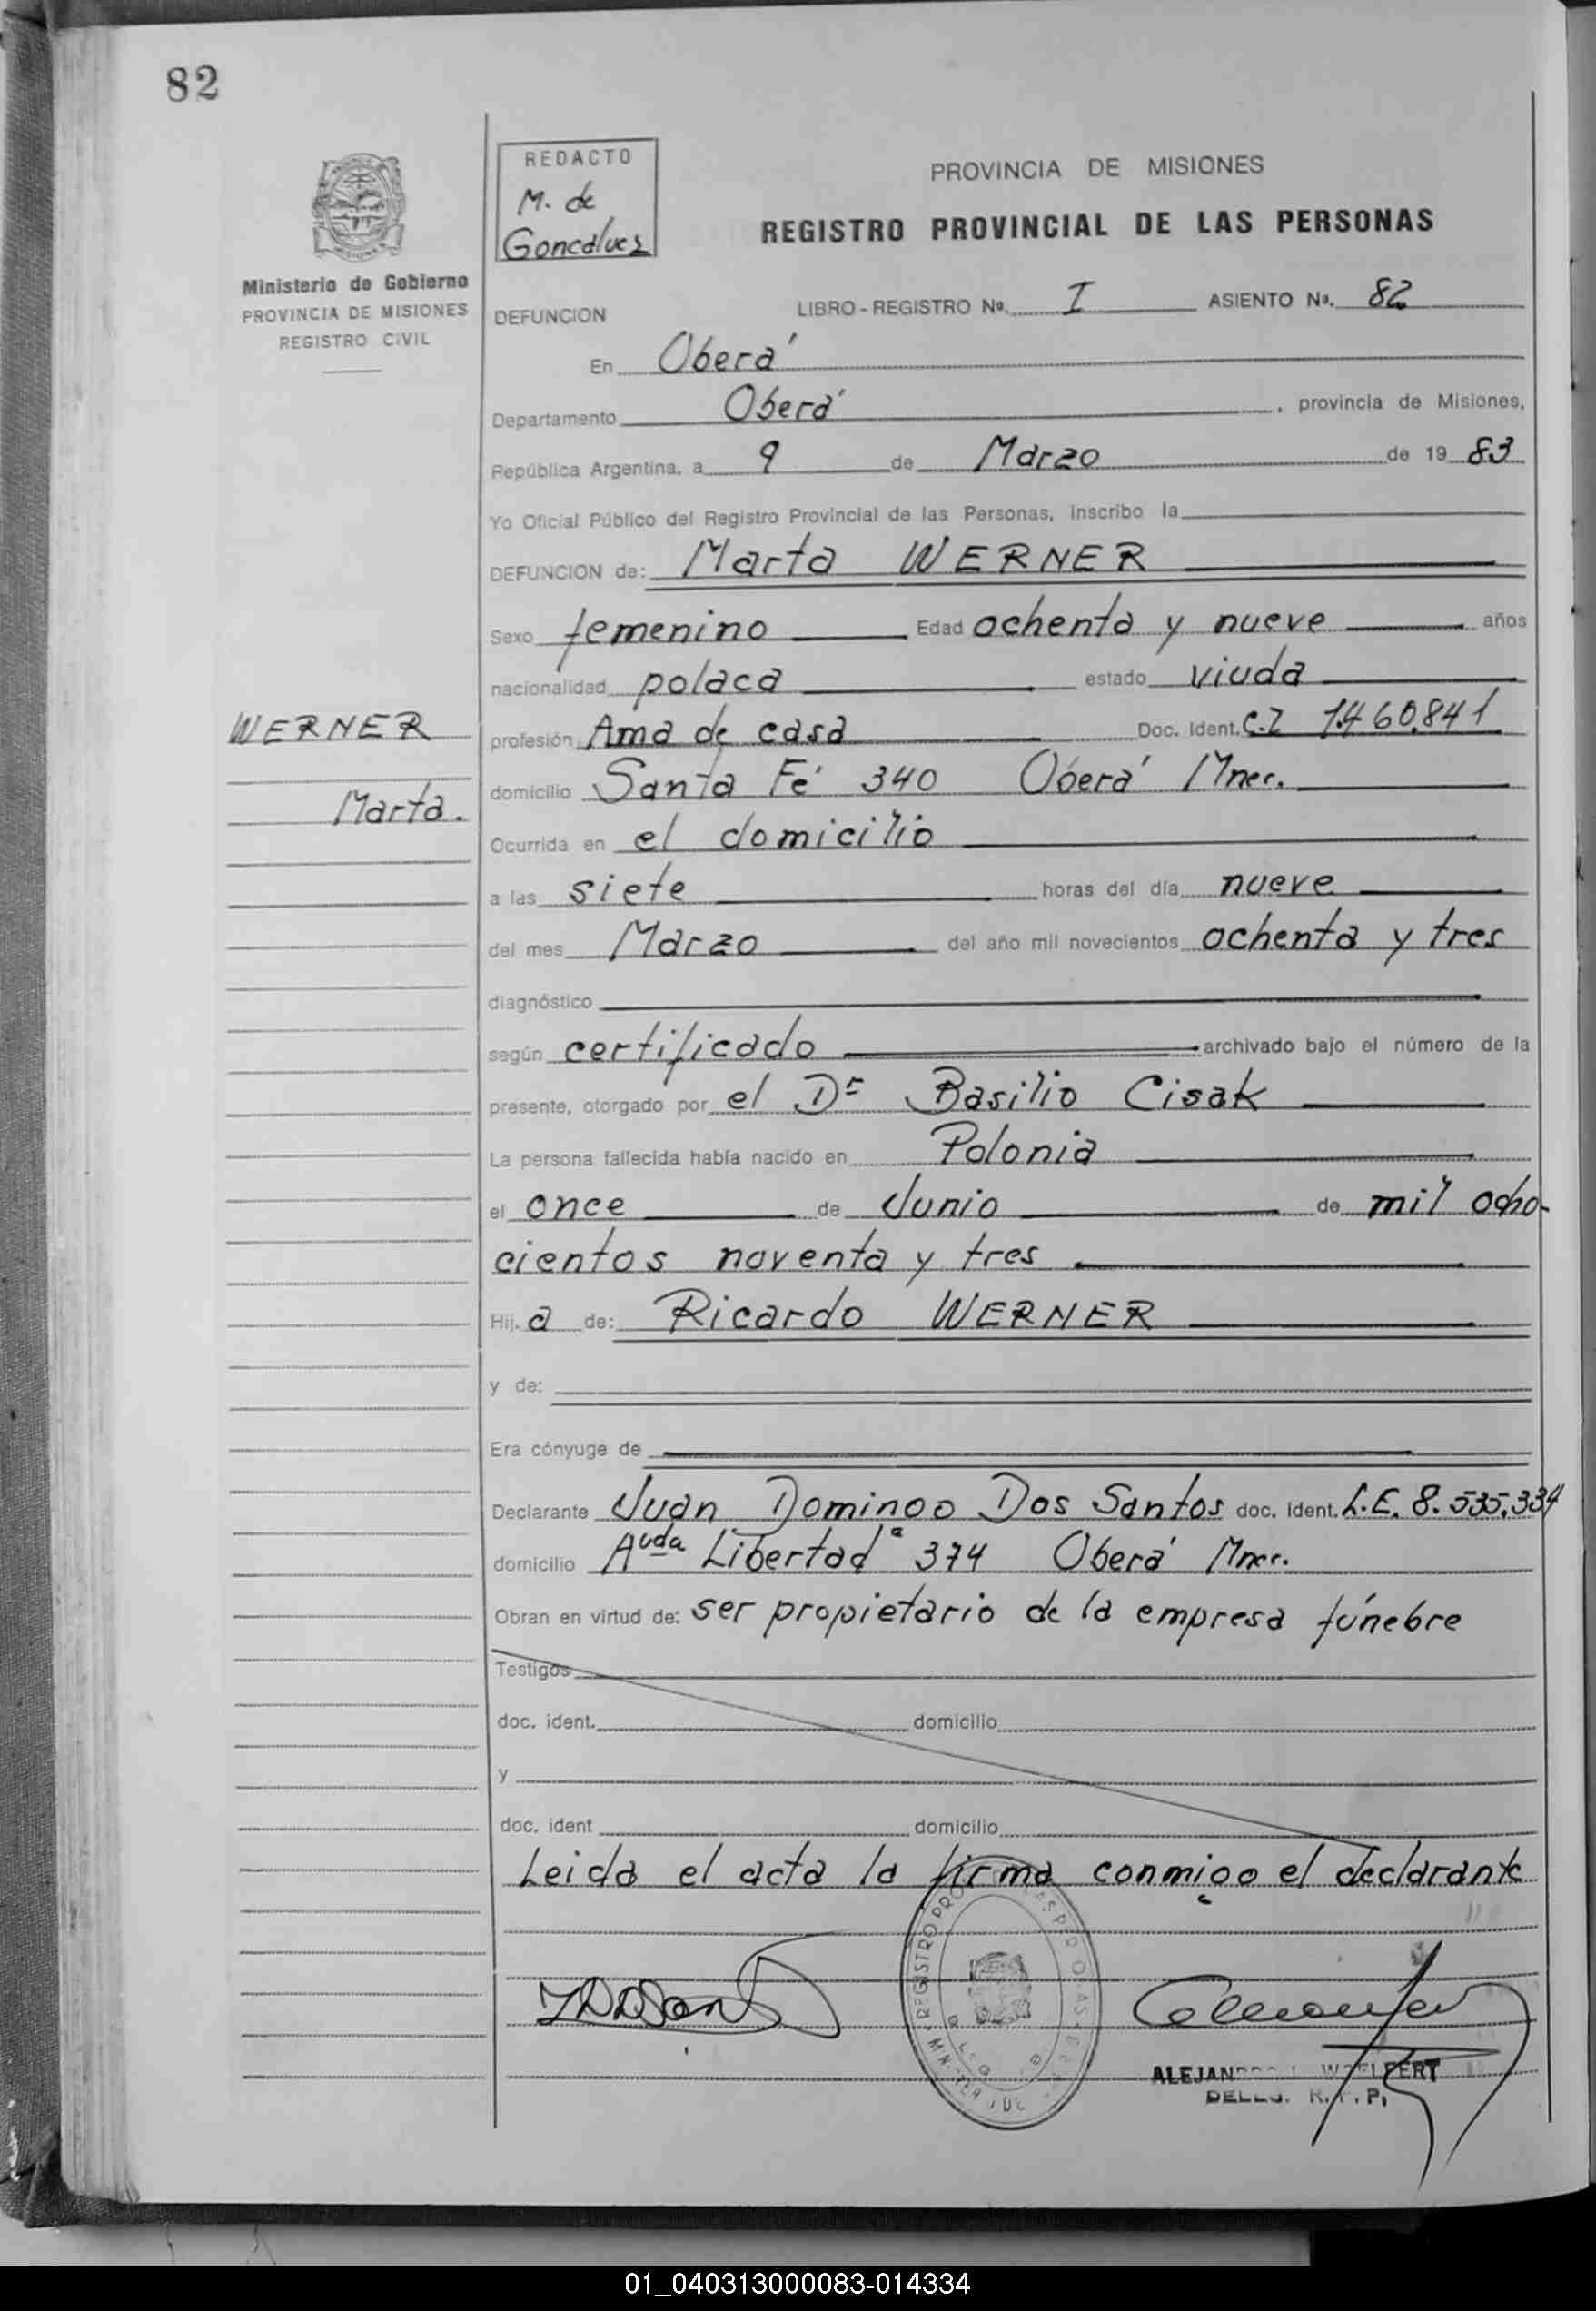 82
REDACTO
M. de
Goncalves
Ministerio de Gobierno
PROVINCIA DE MISIONES
REGISTRO CIVIL
PROVINCIA DE MISIONES
REGISTRO PROVINCIAL DE LAS PERSONAS
DEFUNCION LIBRO - REGISTRO Nº. I ASIENTO Nº. 82
En Oberá
Departamento Oberá , provincia de Misiones,
República Argentina, a 9 de Marzo de 19 83
Yo Oficial Público del Registro Provincial de las Personas, inscribo la
DEFUNCION de: Marta WERNER
Sexo femenino Edad ochenta y nueve años
nacionalidad polaca estado viuda
WERNER
Marta.
profesión Ama de casa Doc. Ident. C.I 1.460.841
domicilio Santa Fé 340 Oberá Mnes.
Ocurrida en el domicilio
a las siete horas del día nueve
del mes Marzo del año mil novecientos ochenta y tres
diagnóstico
según certificado archivado bajo el número de la
presente, otorgado por el Dr Basilio Cisak
La persona fallecida había nacido en Polonia
el once de Junio de mil ocho-
cientos noventa y tres
Hij. a de: Ricardo WERNER
y de:
Era cónyuge de
Declarante Juan Domingo Dos Santos doc. ident. L.E. 8.535.334
domicilio Avda Libertad 374 Oberá Mnes.
Obran en virtud de: ser propietario de la empresa fúnebre
Testigos
doc. ident. domicilio
y
doc. ident domicilio
Leida el acta la firma conmigo el declarante
REGISTRO PRO
DELEG. R. P. P.
01_040313000083-014334